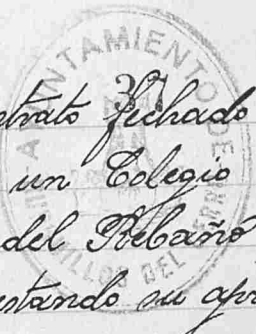 AYUNTAMIENTO DE
31
trato fechado
un Colegio
del Rebaño
stando su apr